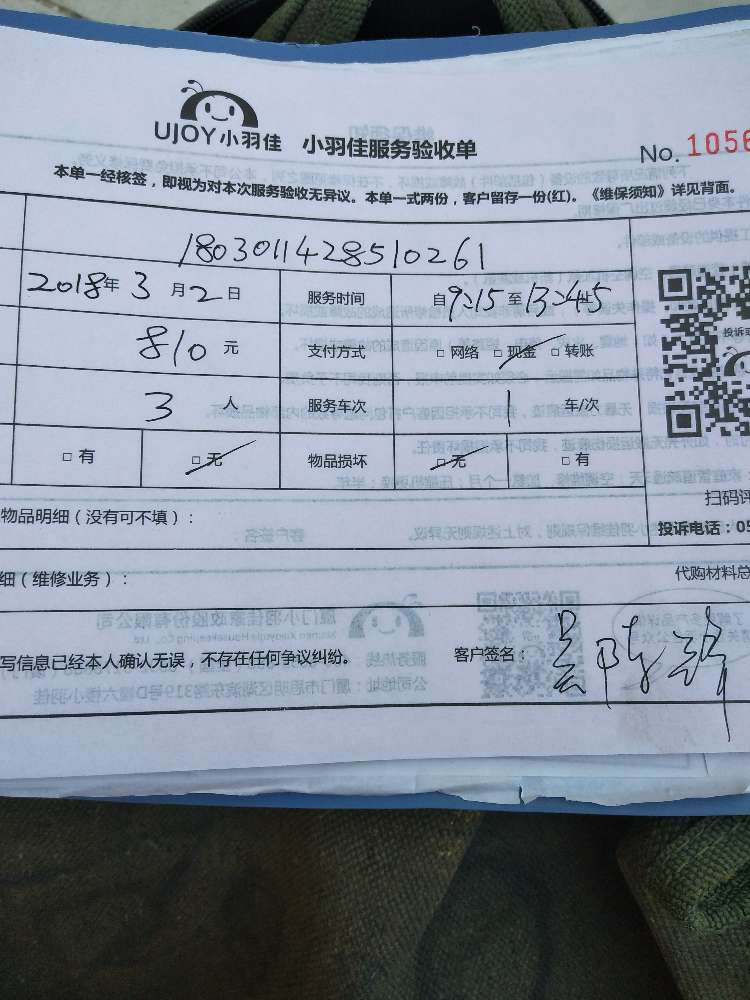 UJOY小羽佳 小羽佳服务验收单
No. 1056
本单一经核签，即视为对本次服务验收无异议。本单一式两份，客户留存一份(红)。《维保须知》详见背面。
1803011428510261
2018年3月2日 服务时间 自9:15至13:45
810元 支付方式 □网络 □现金 □转账
3人 服务车次 1车/次
□有 □无 物品损坏 □无 □有
扫码评
物品明细（没有可不填）：
投诉电话：05
细（维修业务）： 代购材料总
写信息已经本人确认无误，不存在任何争议纠纷。 客户签名：